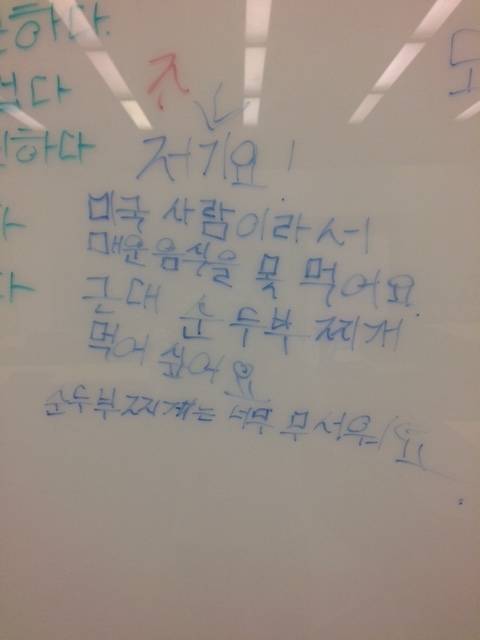 하다
다
하다
저기요!
미국 사람이라서
매운 음식을 못 먹어요
근대 순두부 찌개
먹어 싶어요
순두부 찌게는 너무 무서워요